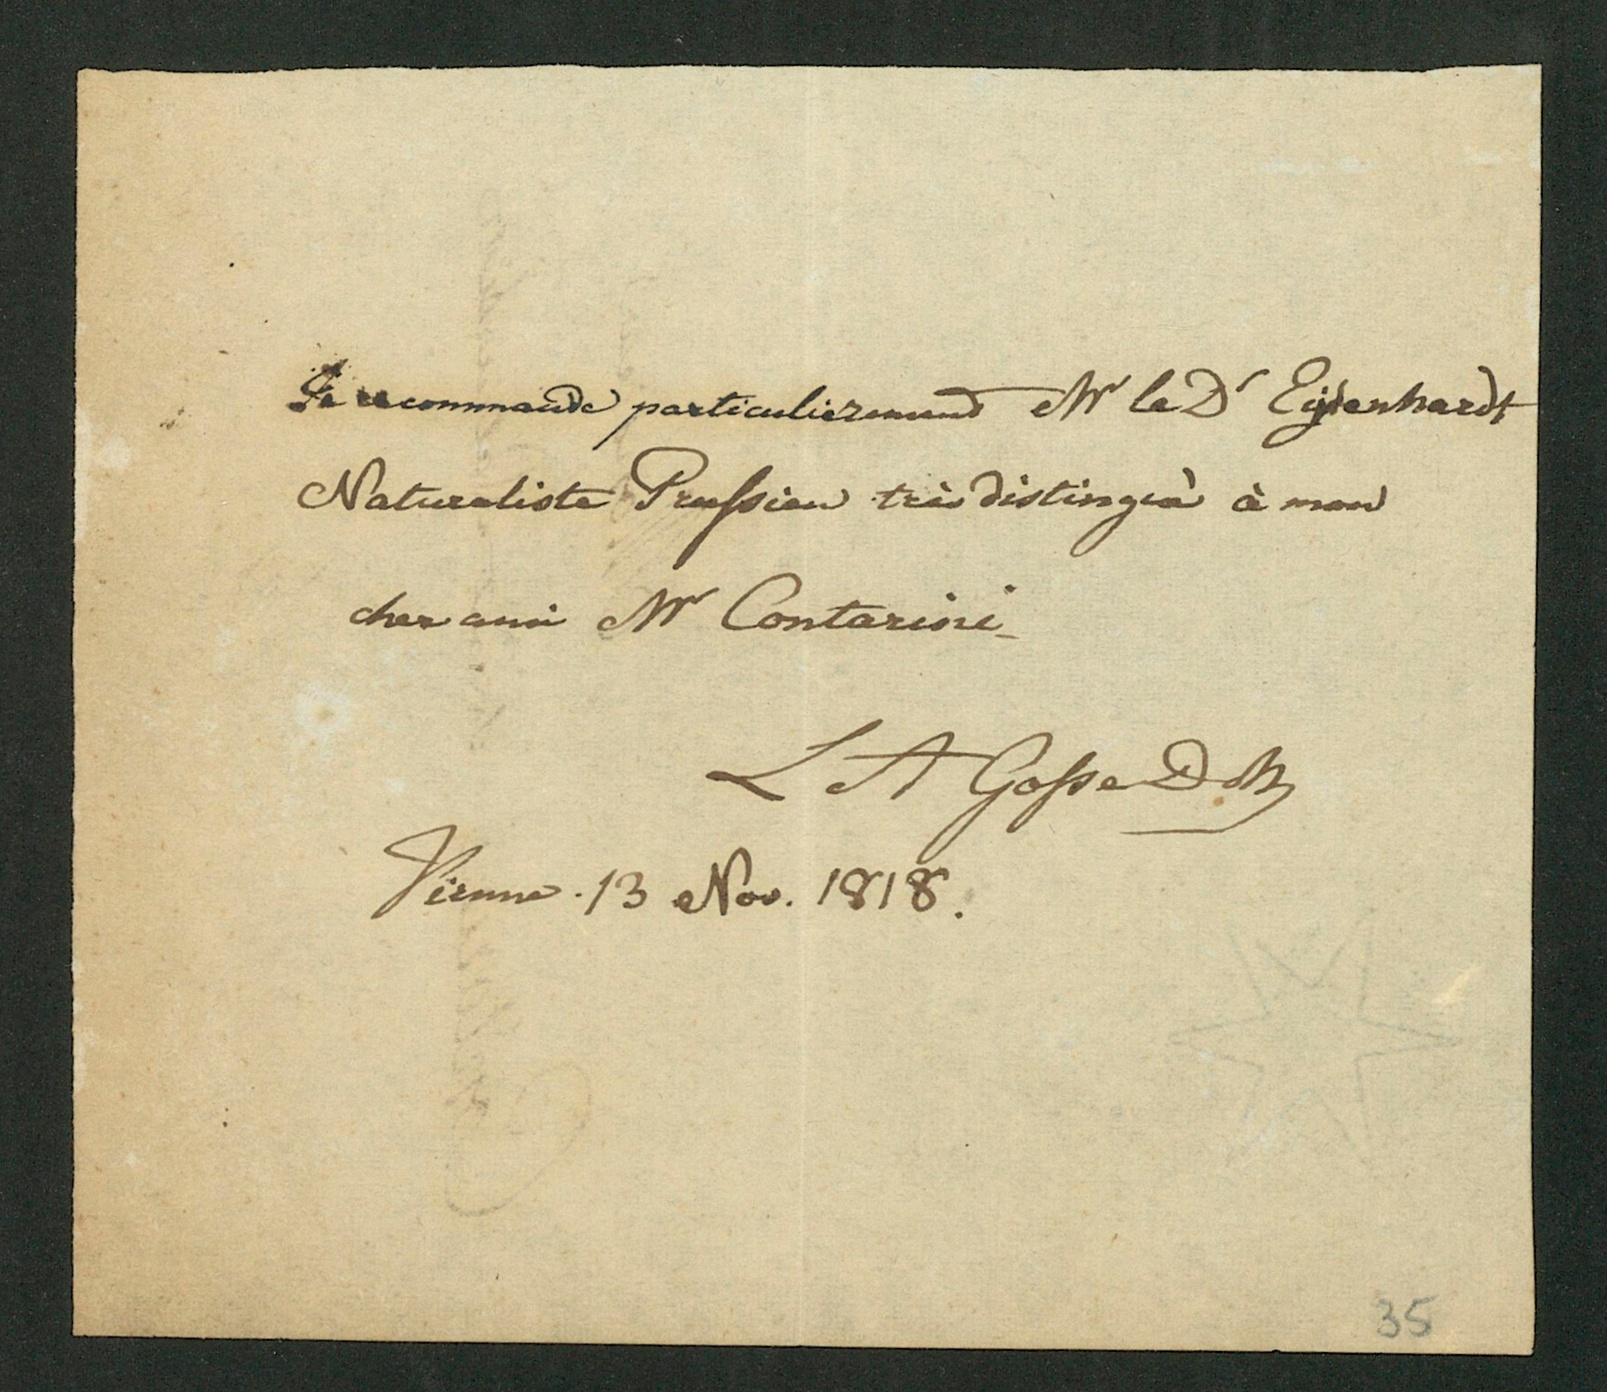 Je recommande particulierement Mr le Dr Eysenhardt
Naturaliste Prussien très distingué à mon
cher ami Mr Contarini
L A Gosse D M
Vienne. 13 Nov. 1818.
35